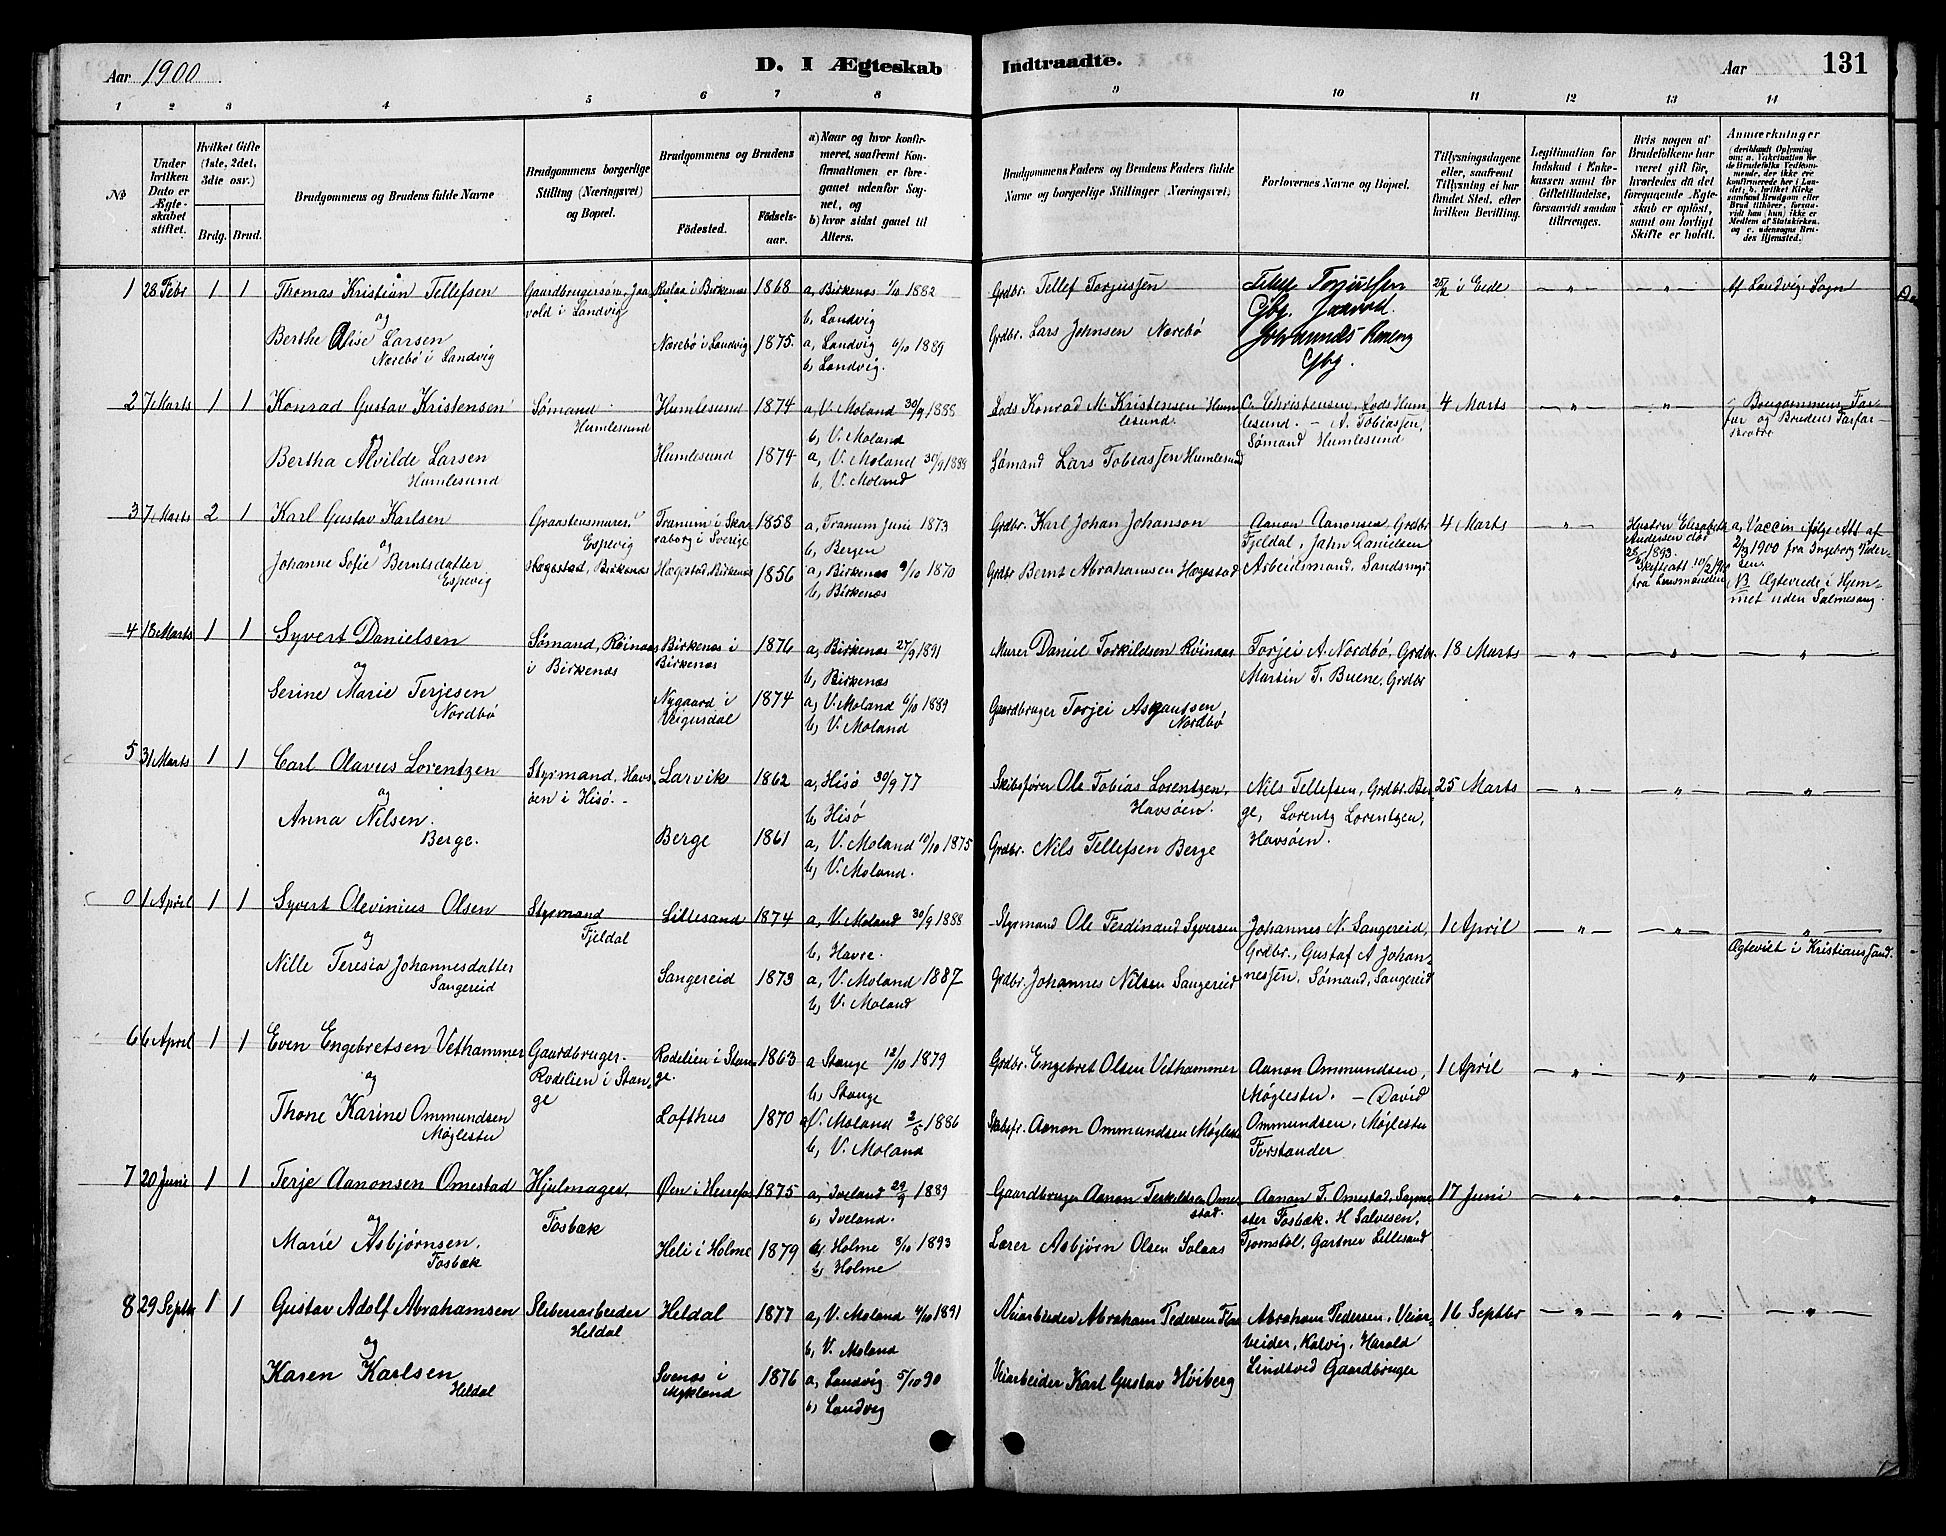 Aar 1900.
D. I Ægteskab Indtraadte.
Aar
131
1 2 3 4 5 6 7 8 9 10 11 12 13 14
No
Under hvilken Dato er Ægteskabet stiftet.
Hvilket Gifte (1ste, 2det, 3die osv.)
Brdg. Brud.
Brudgommens og Brudens fulde Navne
Brudgommens borgerlige Stilling (Næringsvei) og Bopæl.
Brudgommens og Brudens
Fødested.
Fødselsaar.
a) Naar og hvor konfirmeret, saafremt Konfirmationen er foregaaet udenfor Sognet, og
b) hvor sidst gaaet til Alters.
Brudgommens Faders og Brudens Faders fulde Navne og borgerlige Stillinger (Næringsvei).
Forlovernes Navne og Bopæl.
Tillysningsdagene eller, saafremt Tillysning ei har fundet Sted, efter hvilken Bevilling.
Legitimation for Indskud i Enkekassen samt for Giftetilladelse, forsaavidt saadan tiltrænges.
Hvis nogen af Brudefolkene har været gift før, hvorledes da det foregaaende Ægteskab er opløst, samt om lovligt Skifte er holdt.
Anmærkninger
1 28 Febr 1 1 Thomas Kristian Tellefsen
og
Berthe Olise Larsen
Nærebö i Landvig
Gaardbrugersøn, Jaavold i Landvig
i Birkenæs 1868
Nærebö i Landvig 1875.
a, Birkenæs 1/10 1882
b, Landvig
a, Landvig 6/10 1889
b, Landvig.
Grdbr. Tellef Torjussen
Grdbr. Lars Johnsen Nærebö
Tellef Torjussen
Gbg. Jaavold.
Johannes
Gbg.
25/2 i Eide
Af Landvig Sogn
2 7 Marts 1 1 Konrad Gustav Kristensen
og
Bertha Alvilde Larsen
Humlesund
Sømand
Humlesund
Humlesund 1874
Humlesund 1874
a, V. Moland 30/9 1888
b, V. Moland
a, V. Moland 30/9 1888
b, V. Moland
Lods Konrad M. Kristensen Humlesund.
Sømand Lars Tobiassen Humlesund
C. Christensen, Lods Humlesund. — A. Tobiassen, Sømand Humlesund
4 Marts
Brugommens Farfar og Brudens Farfar
3 7 Marts 2 1 Karl Gustav Karlsen
og
Johanne Sofie Berntsdatter
Espevig
Graastensmurer,
Espevig
Hægestad, Birkenæs
Tranum i Skaraborg i Sverige 1858
Hægestad, Birkenæs 1856
a, Tranum Juni 1873
b, Bergen
a, Birkenæs 9/10 1870
b, Birkenæs
Grdbr. Karl Johan Johanson
Grdbr Bernt Abrahamsen Hægestad
Aanon Aanonsen, Grdbr Fjeldal, Jahn Danielsen Arbeidsmand,
4 Marts
Hustru Elisabeth Andersen død 1893. Skifteatt. 10/2 1900 fra Lensmanden
a, Vaccin ifølge Att af 2/3 1900 fra Ingeborg
NB Ægteviede i Hjemmet uden Salmesang.
4 18 Marts 1 1 Syvert Danielsen
og
Serine Marie Terjesen
Nordbö
Sømand, Röinaas i Birkenæs
Birkenæs i Birkenæs 1876
Nygaard i Veigusdal 1874
a, Birkenæs 27/9 1891
b, Birkenæs
a, V. Moland 6/10 1889
b, V. Moland
Murer Daniel Torkildsen Röinaas
Gaardbruger Torjei Asgautsen
Nordbö
Torjei A. Nordbö, Grdbr.
Martin T. Buene, Grdbr
18 Marts
5 31 Marts 1 1 Carl Olavus Lorentzen
og
Anna Nilsen.
Berge.
Styrmand, Havsöen i Hisö.
Larvik 1862
Berge 1861
a, Hisö 30/9 77
b, Hisö
a, V. Moland 10/10 1875
b, V. Moland.
Skibsfører Ole Tobias Lorentzen,
Havsöen.
Grdbr. Nils Tellefsen Berge
Nils Tellefsen, Grdbr. Berge, Lorentz Lorentzen, Havsöen.
25 Marts
0 1 April 1 1 Syvert Olevinius Olsen
og
Nille Teresia Johannesdatter
Sangereid
Styrmand
Fjeldal
Lillesand 1874
Sangereid 1873
a, V. Moland 30/9 1888
b, Havre.
a, V. Moland 1887
b, V. Moland
Styrmand Ole Ferdinand Syversen
Grdbr. Johannes Nilsen Sangereid
Johannes N. Sangereid, Grdbr., Gustaf A Johannessen, Sømand, Sangereid
1 April
Ægteviet i Kristianssand.
6 6 April 1 1 Even Engebretsen Vethammer
og
Thone Karine Ommundsen
Møglestu
Gaardbruger.
Rodelien i Stange
Rodelien i Stange. 1863
Lofthus 1870
a Stange 12/10 1879
b, Stange
a, V. Moland 2/5 1886
b, V. Moland
Grdbr. Engebret Olsen Vethammer
Skibsfr. Aanon Ommundsen Møglestu
Aanon Ommundsen, Møglestu. — David Ommundsen, Møglestu Forstander
1 April
7 20 Juni 1 1 Terje Aanonsen Omestad
og
Marie Asbjørnsen.
Fosbæk
Hjulmager,
Fosbæk
Øen i Herrefos 1875
Heli i Holme 1879
a, Iveland 29/9 1889
b, Iveland.
a, Holme 8/10 1893
b, Holme
Gaardbruger Aanon Terkildsen Omestad.
Lærer Asbjørn Olsen Solaas
Aanon T. Omestad, Sagmester Fosbæk. H Salvesen, Tjomstøl, Gartner Lillesand
17 Juni
8 29 Septbr 1 1 Gustav Adolf Abrahamsen
og
Karen Karlsen
Heldal
Sliberiarbeider
Heldal
Heldal 1877
Svenøs i Mykland 1876
a, V. Moland 4/10 1891
b, V. Moland
a, Landvig 5/10 90
b, Landvig
Veiarbeider Abraham Pedersen
Veiarbeider Karl Gustav Høiberg
Abraham Pedersen, Veiarbeider, Kalvig. Harald Lindtved Gaardbruger
16 Septbr